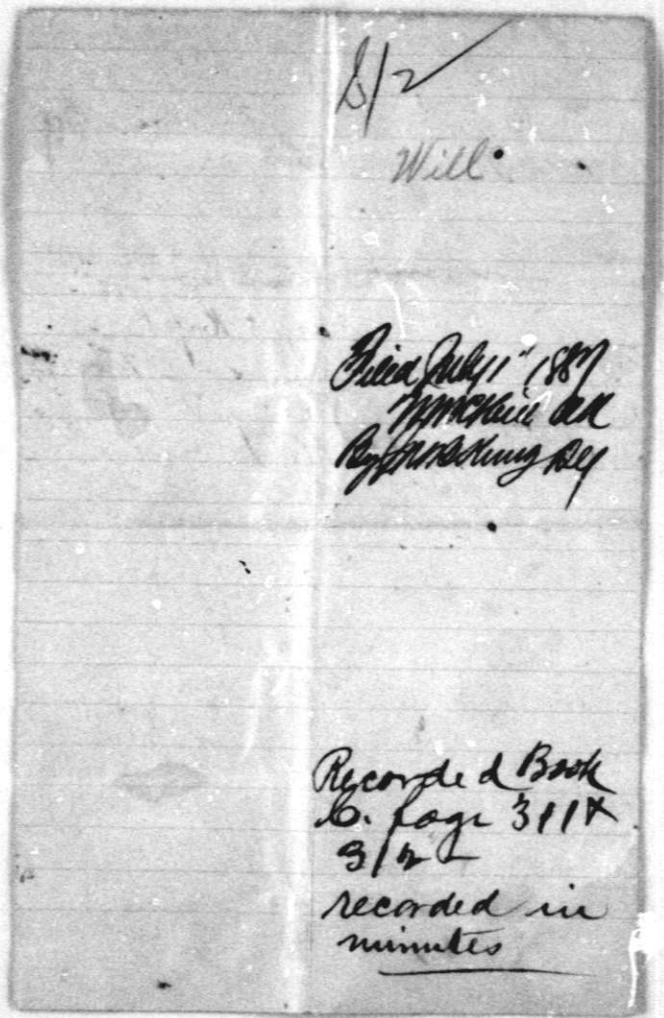 Will
Filed July 1" 1887
By Dey
Recorded Book
C. page 311 &
312
recorded in
minutes